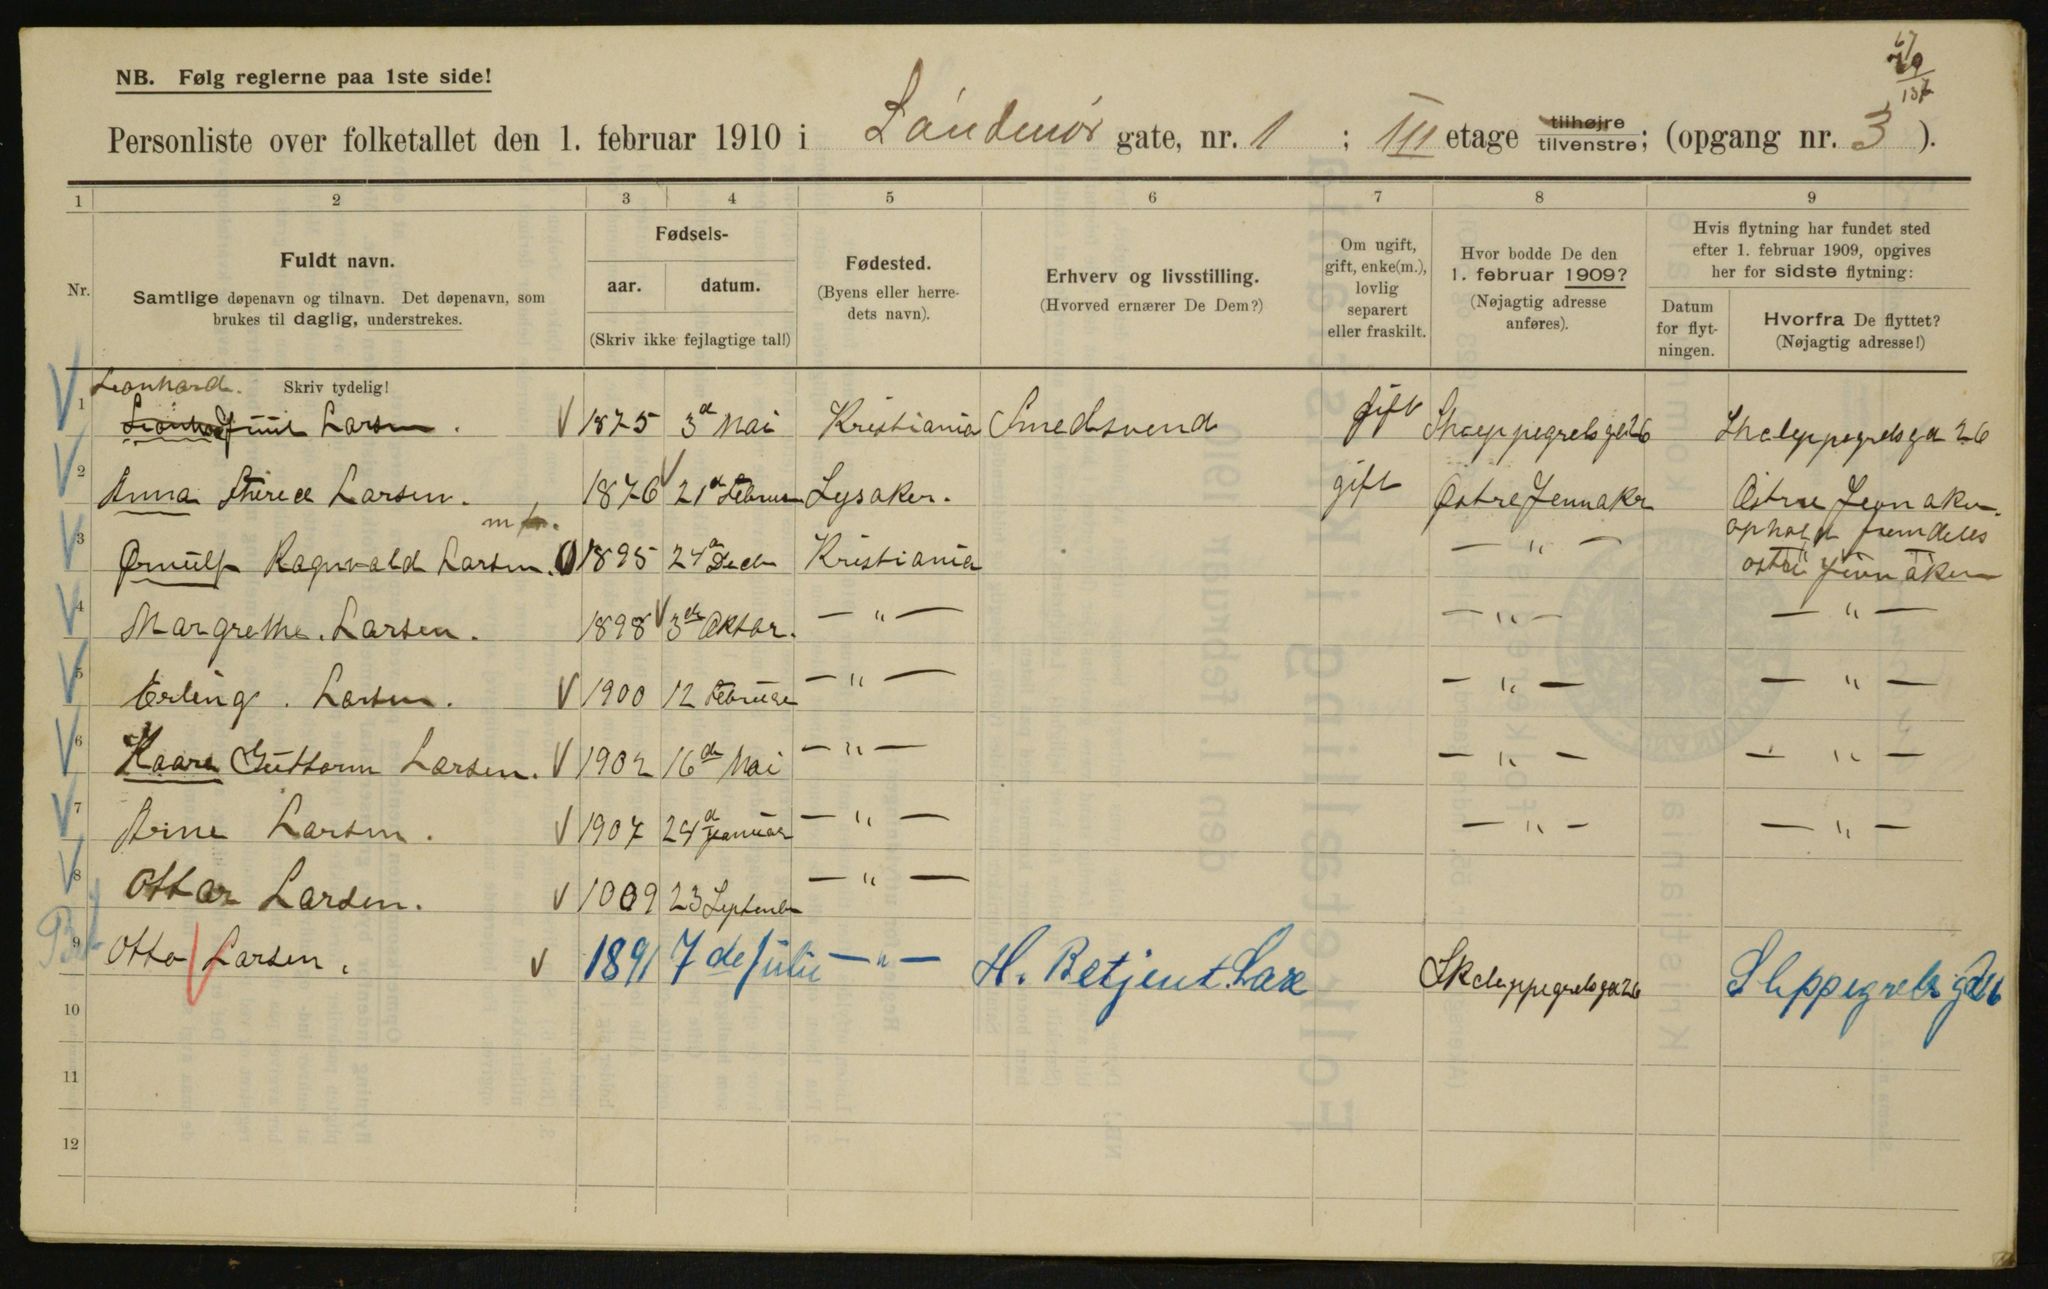 NB. Følg reglerne paa 1ste side!
Personliste over folketallet den 1. februar 1910 i gate, nr. 1 ; III etage tilhøjre tilvenstre; (opgang nr. 3 ).
1 2 3 4 5 6 7 8 9
Nr.
Fuldt navn.
Samtlige døpenavn og tilnavn. Det døpenavn, som
brukes til daglig, understrekes.
Skriv tydelig!
Fødsels-
aar. datum.
(Skriv ikke fejlagtige tal!)
Fødested.
(Byens eller herre-
dets navn).
Erhverv og livsstilling.
(Hvorved ernærer De Dem?)
Om ugift,
gift, enke(m.),
lovlig
separert
eller fraskilt.
Hvor bodde De den
1. februar 1909?
(Nøjagtig adresse
anføres).
Hvis flytning har fundet sted
efter 1. februar 1909, opgives
her for sidste flytning:
Datum
for flyt-
ningen.
Hvorfra De flyttet?
(Nøjagtig adresse!)
Leonhard.
1 Larsen. 1875 3d Mai Kristiania Smedsvend gift 26 26
2 Anna Larsen. 1876 21d Lysaker. gift Østre
3 Ørnulf Ragnvald Larsen. 1895 24d Kristiania — " —
4 Margrethe. Larsen. 1898 3de Oktor. — " — — " — — " —
5 Erling. Larsen. 1900 12 Februar — " — — " — — " —
6 Kaare Guttorm Larsen. 1902 16de Mai — " — — " — — " —
7 Arne Larsen. 1907 24d Januar — " — — " — — " —
8 Ottar Larsen. 1909 23 September — " —
9 Otto Larsen. 1891 7de Juli — " — H. Betjent 26
10
11
12